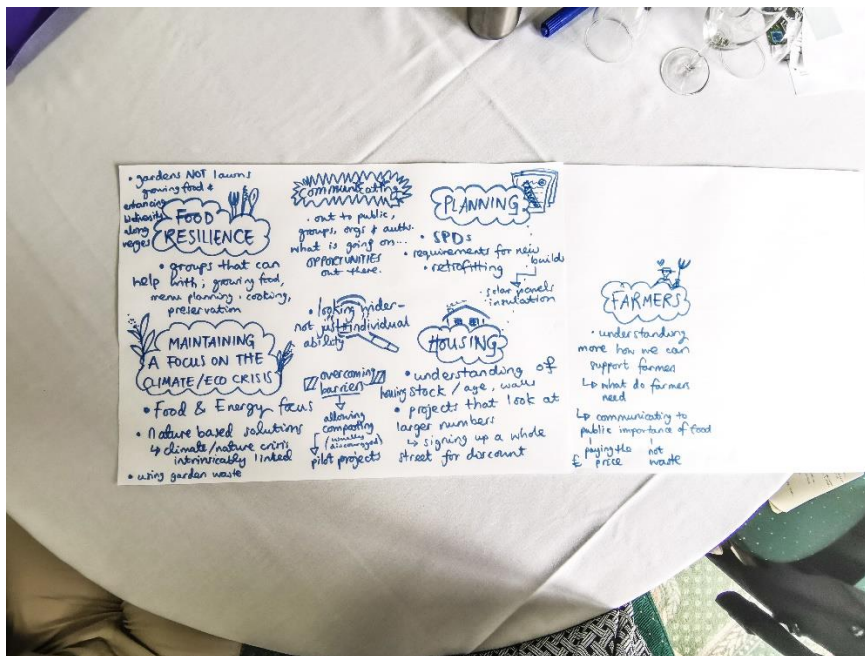 • gardens NOT lawns
growing food &
enhancing
biodiversity
along
verges
FOOD
RESILIENCE
• groups that can
help with; growing food,
menu planning, cooking,
preservation
MAINTAINING
A FOCUS ON THE
CLIMATE/ECO CRISIS
• Food & Energy focus
• Nature based solutions
↳ climate/nature crisis
intrinsically linked
• using garden waste
Communicating
• out to public,
groups, orgs & auths.
what is going on...
OPPORTUNITIES
out there.
• looking wider-
not just individual
ability
overcoming
barriers
allowing
composting
(usually
discouraged)
pilot projects
PLANNING
• SPDs
• requirements for new
build
• retrofitting
solar panels
insulation
HOUSING
• understanding of
housing stock / age, walls
• projects that look at
larger numbers
↳ signing up a whole
street for discount
FARMERS
• understanding
more how we can
support farmers
↳ what do farmers
need
↳ communicating to
public importance of food
paying the
£ price
not
waste